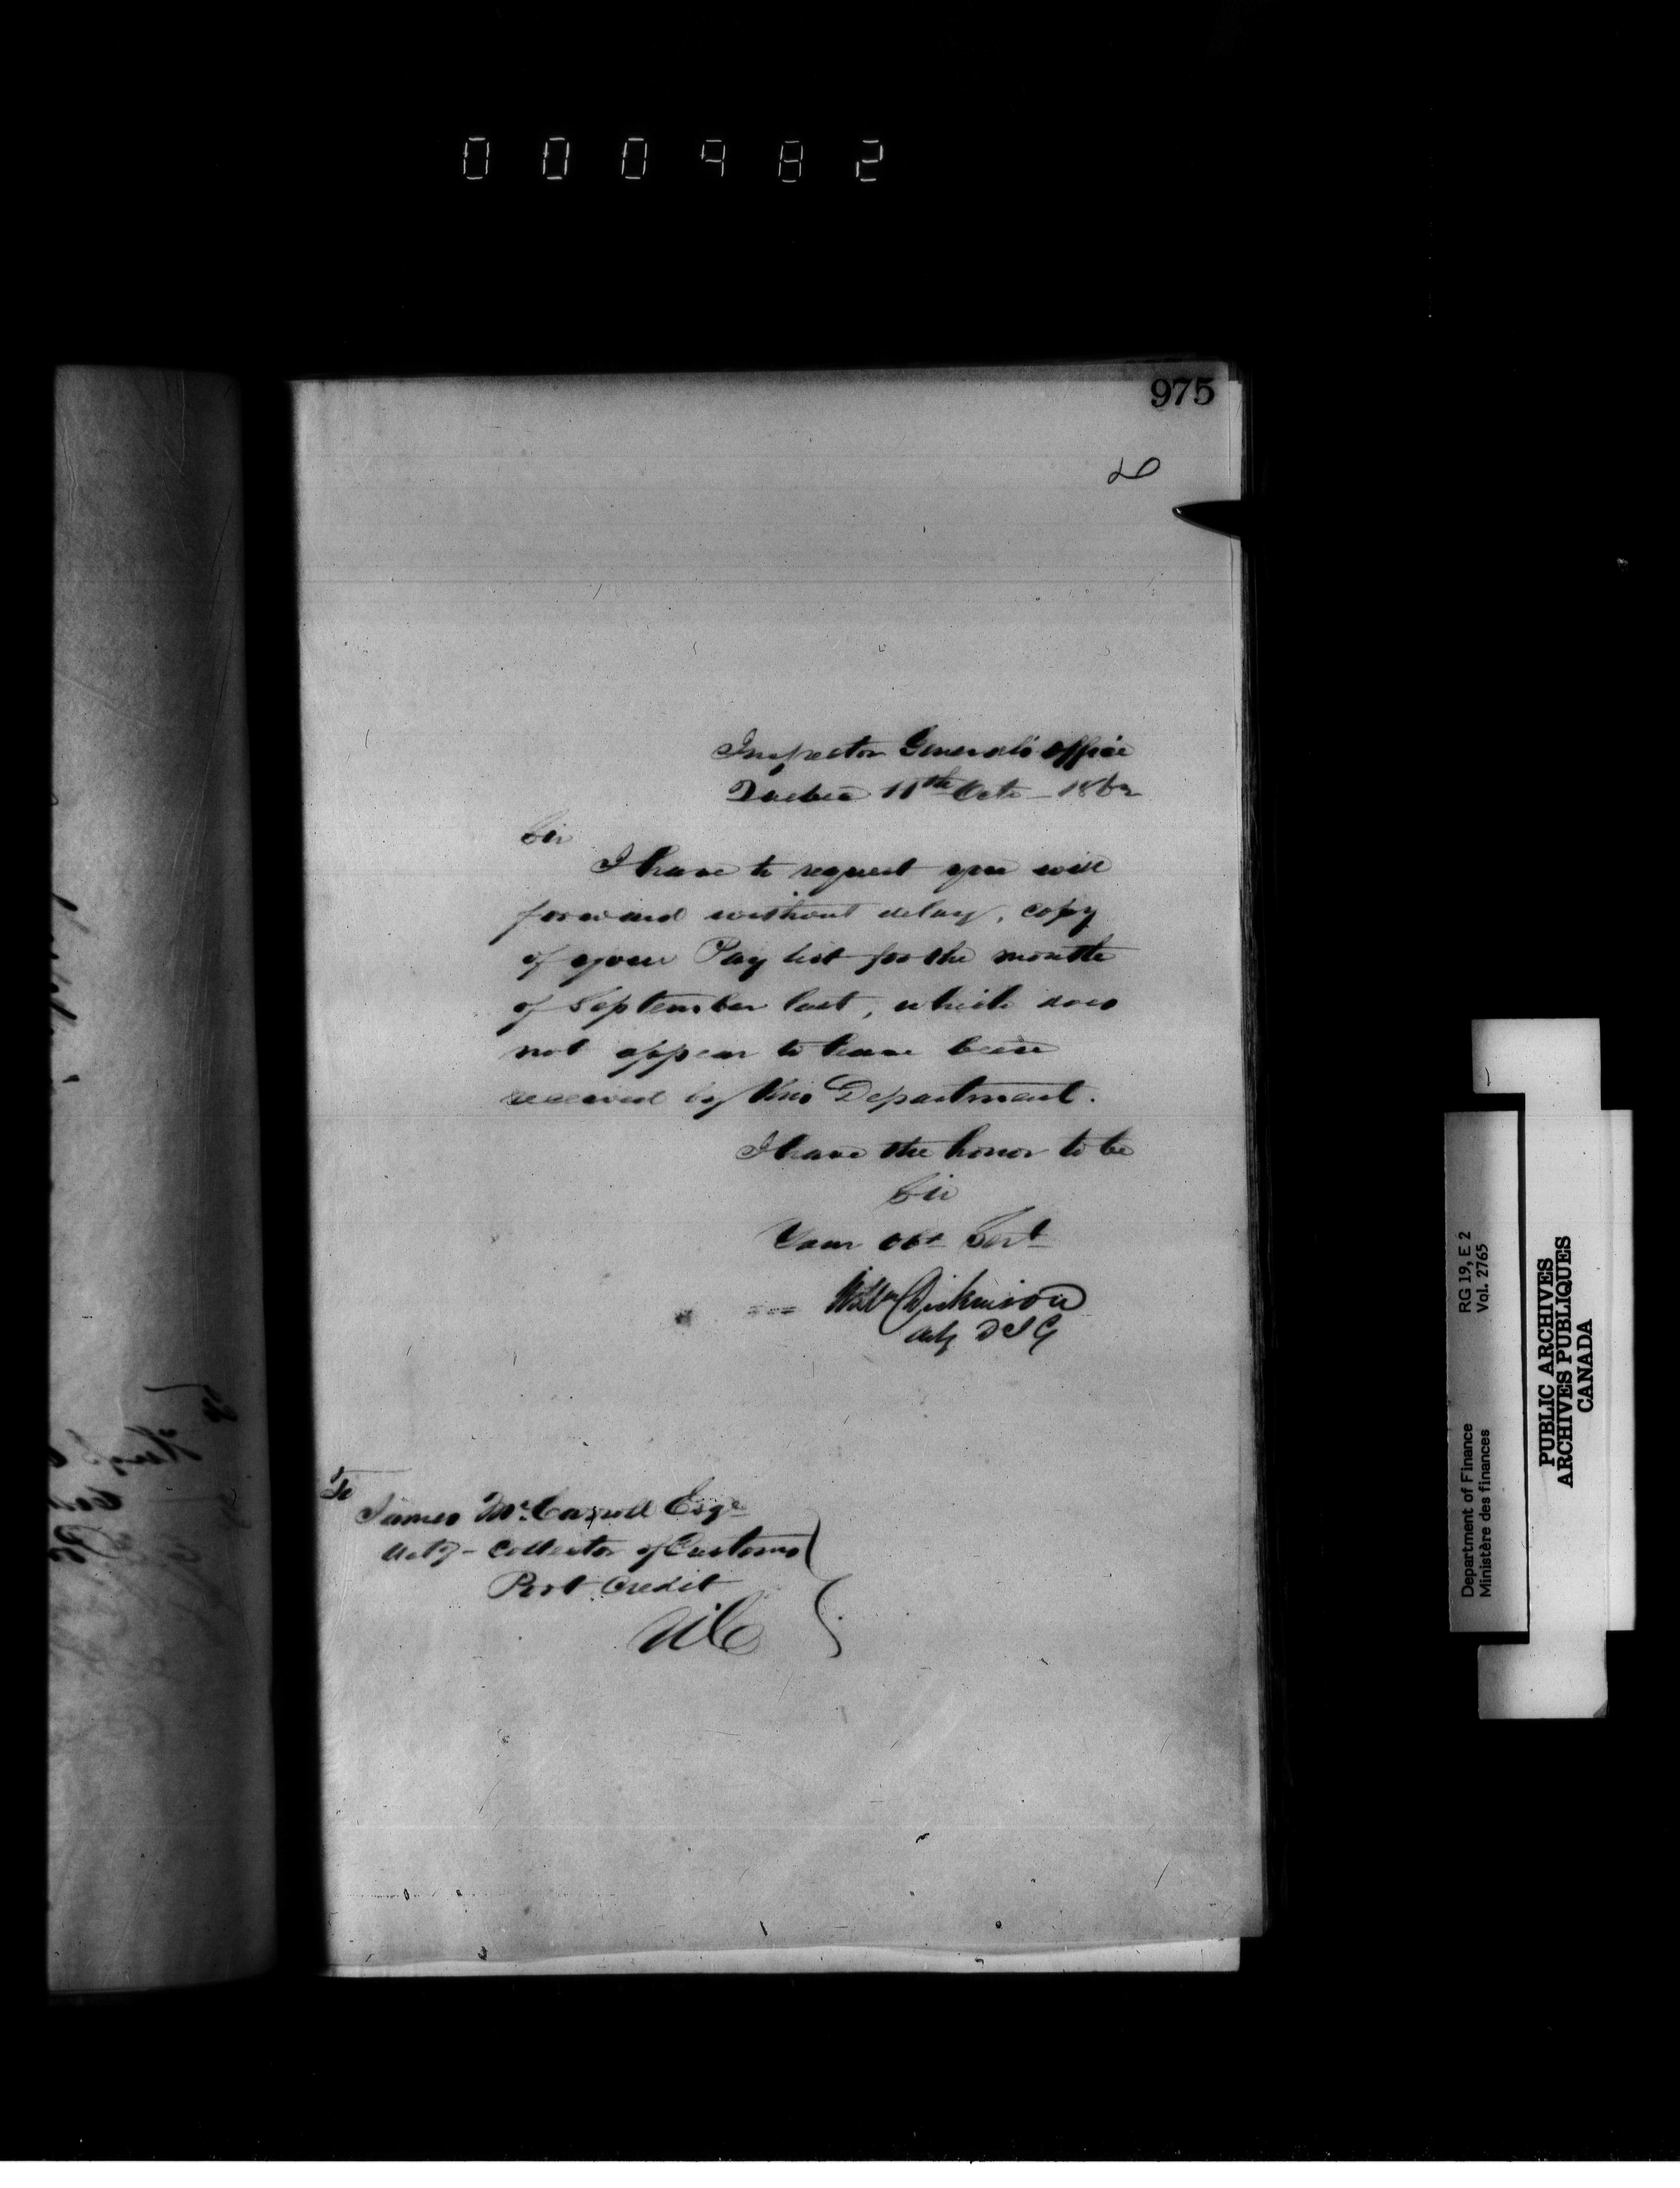 000982
975
Inspector General's Office
Quebec 11th Octr - 1862
Sir
I have to request you will
forward without delay, copy
of your Pay list for the month
of September last, which does
not appear to have been
received by this Department.
I have the honor to be
Sir
Your Obt Servt
Wm Dickinson
Actg D I G
To
James McCarroll Esqe
Actg - Collector of Customs
Port Credit
UC
Department of Finance RG 19, E 2
Ministère des finances Vol. 2765
PUBLIC ARCHIVES
ARCHIVES PUBLIQUES
CANADA